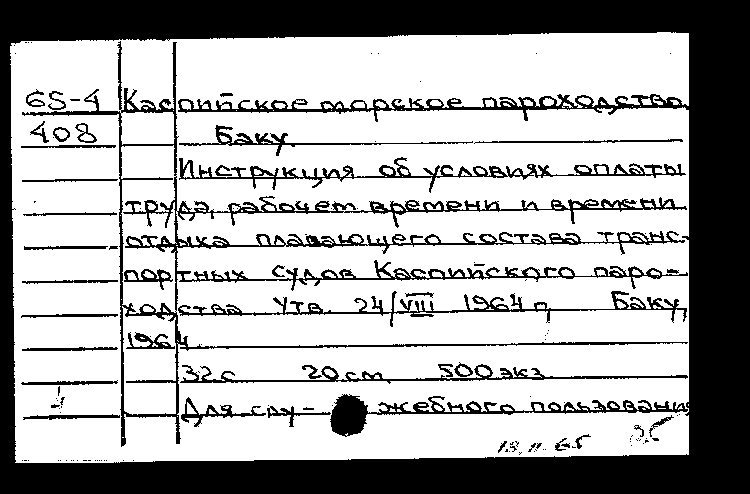 65-4 Каспийское морское пароходство.
408 Баку.
Инструкция об условиях оплаты
труда, рабочем времени и времени
отдыха плавающего состава транс-
портных судов Каспийского паро-
ходства. Утв. 24/VIII 1964 г. Баку,
1964.
32 с. 20 см. 500 экз.
Для слу- жебного пользования
13.11.65